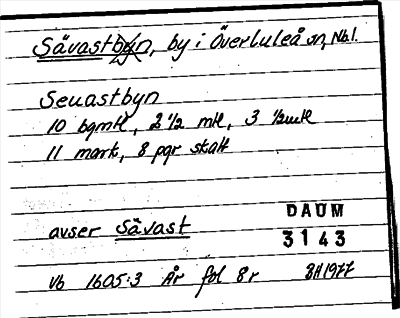 Sävastbyn, by i Överluleå sn, Nbl.
Seuastbyn
10 bgmk, 2 1/2 mk, 3 1/2 mk
11 mark, 8 pgr skatt
DAUM
avser Sävast
3143
Vb 1605:3 År fol 8r BH1977